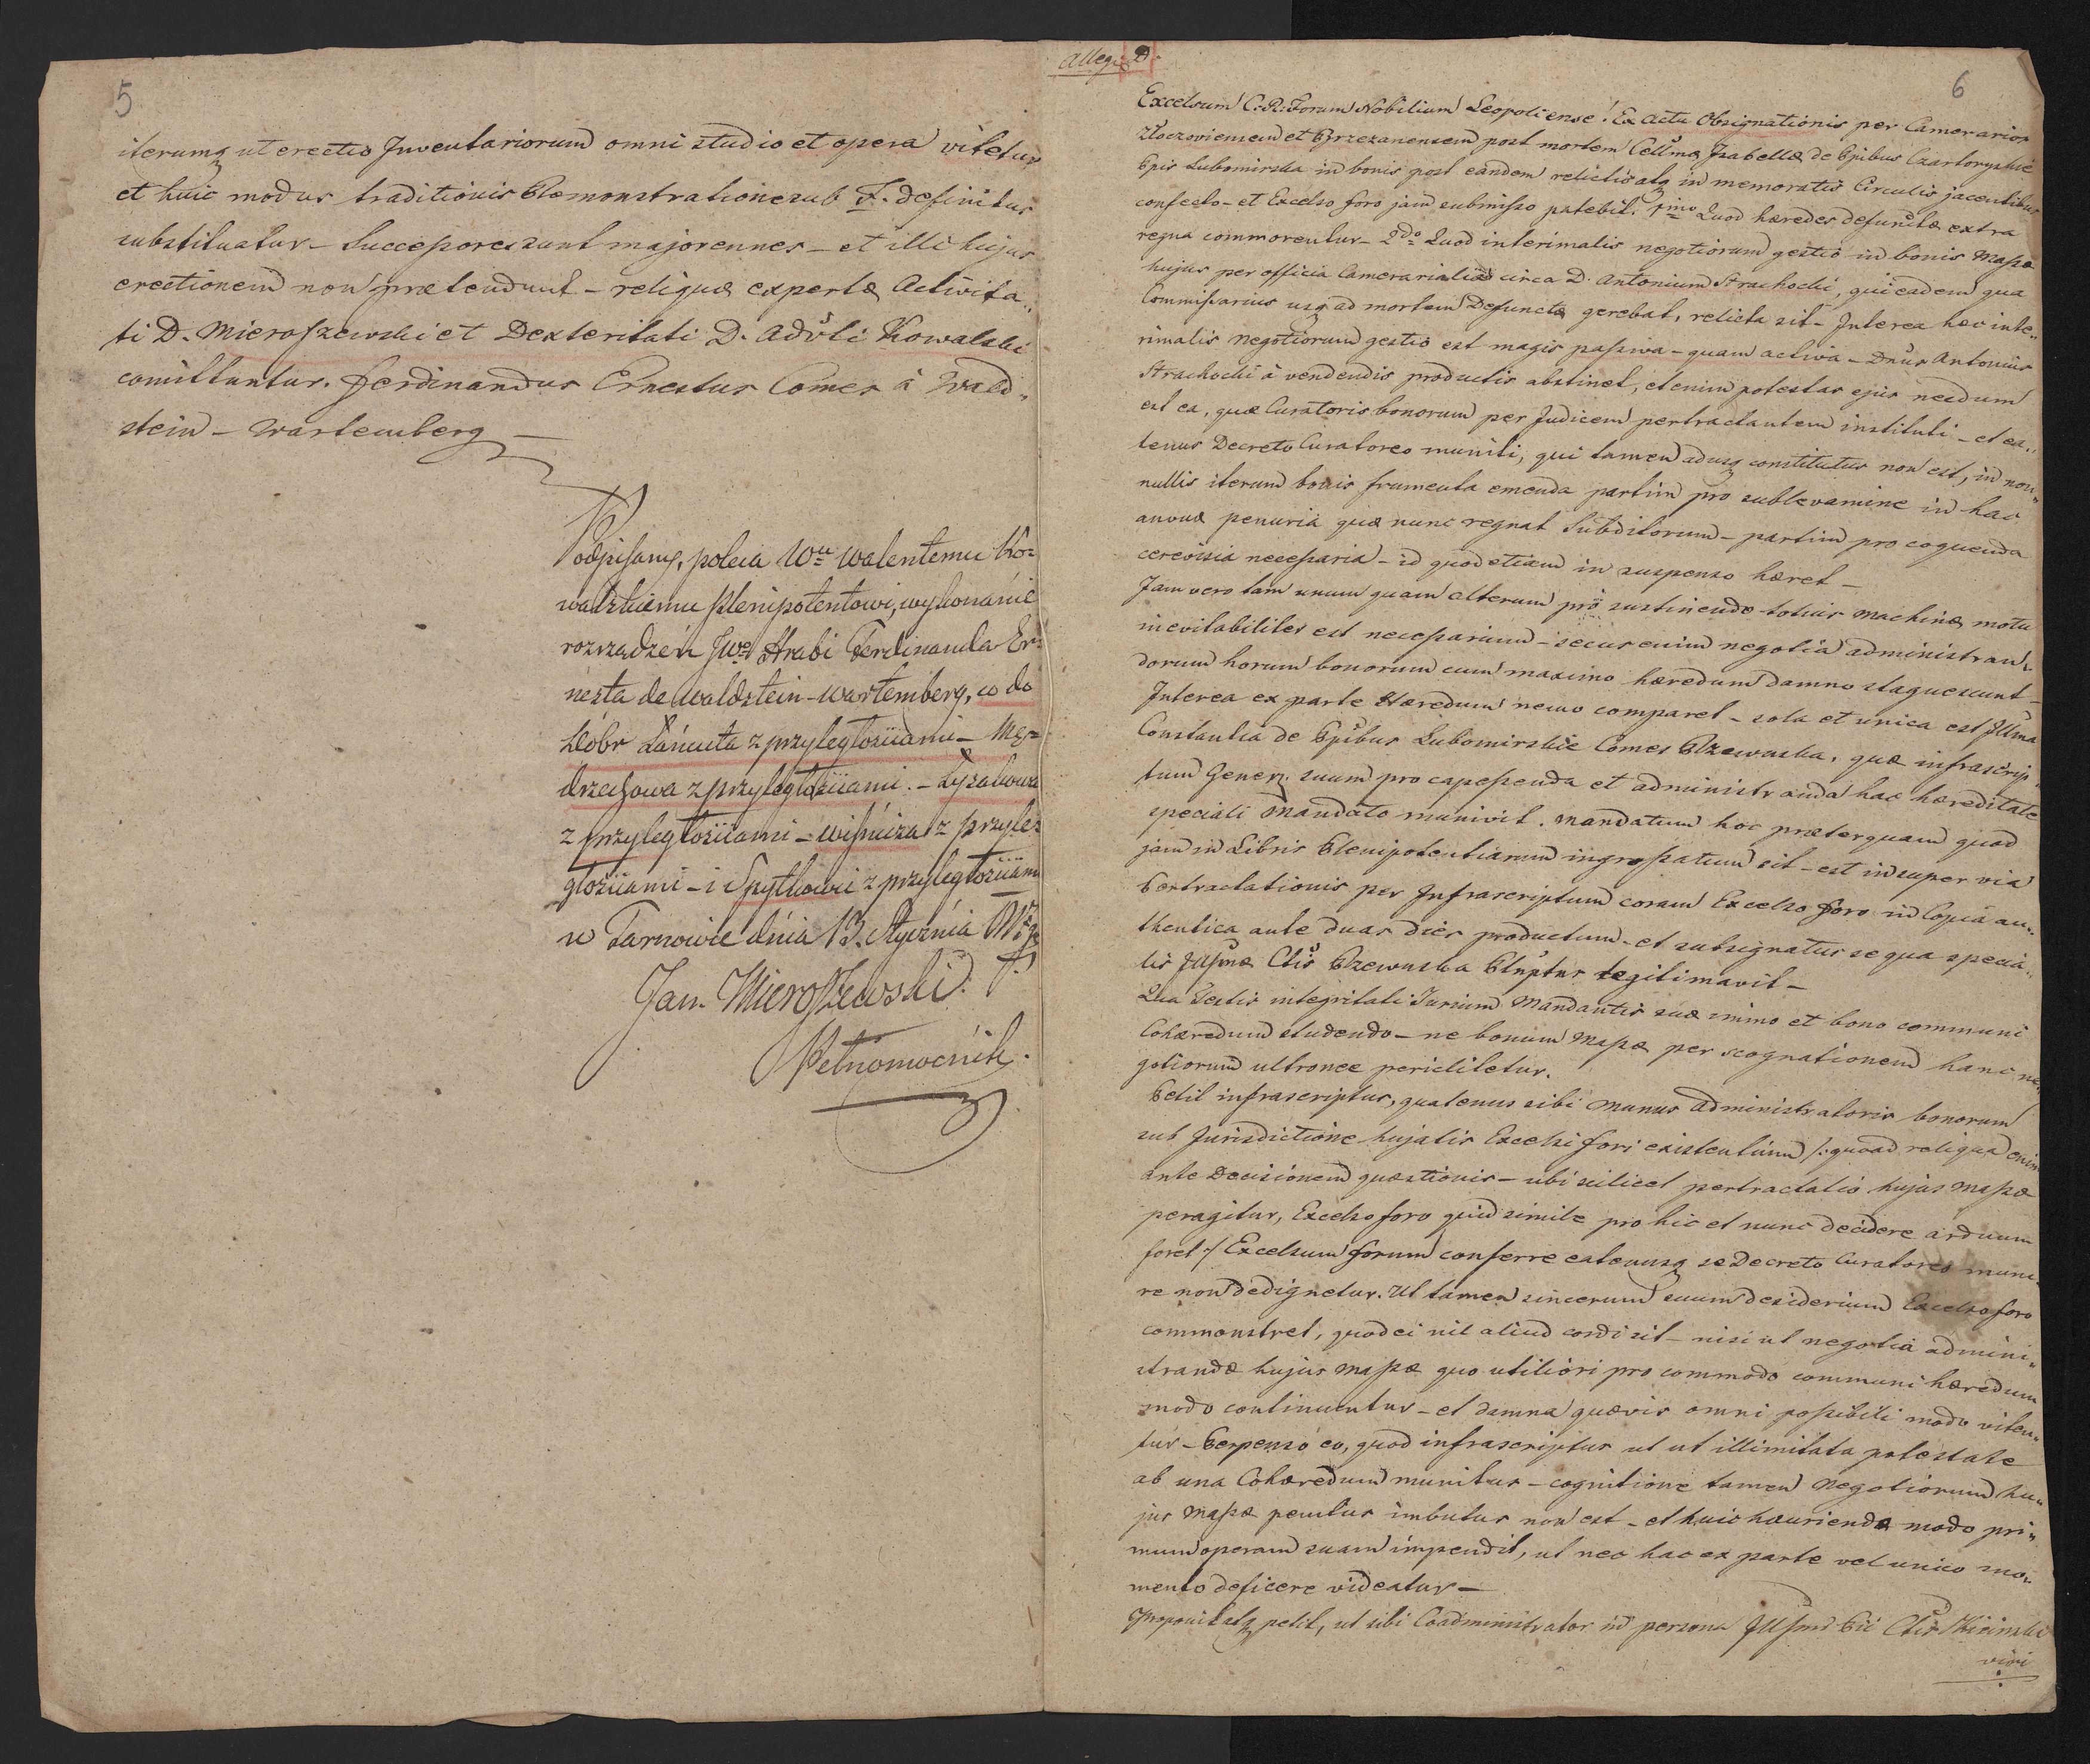 5
iterumq ut erectio Inventariorum omni studio et opera vitetur
et huic modus traditionis Plemonstratione sub F. definitus
substituatur – Successores sunt majorennes – et illi hujus
erectionem non prætendunt – reliqua expertæ Activita„
ti D. Mieroszewski et Dexteritati D. Advti Kowalski
comittuntur. Ferdinandus Ernestus Comes à Wald„
stein – Wartemberg –
Podpisany, poleca Wu Walentemu Ko=
walskiemu Plenipotentowi, wykonanie
rozrządzeń JWo Hrabi Ferdinanda Er=
nesta de Waldstein-Wartemberg, co do
Dóbr Łańcuta z przyległościami – Mę=
drzechowa z przyległościami. –
z przyległościami – Wiśnicza z przyle=
głościami – i Spytkowic z przyległościami
w Tarnowie dnia 13. Stycznia
Jan Mieroszewski.
Pełnomocnik.
Alleg: D.
6
Excelsum C.R. Forum Nobilium Leopoliense! Ex Actu Obsignationis per Camerarios
Złoczoviensem et Brzezanensem post mortem Celsmæ Isabellæ de Ppibus Czartoryskie
Ppis Lubomirska in bonis post eandem relictis atq in memoratis Circulis jacentibus
confecto – et Excelso foro jam submisso patebit. 1mo Quod hæredes defunctæ extra
regna commorentur – 2do Quod interimalis negotiorum gestio in bonis Massæ
hujus per officia Cameraria circa D. Antonium Strachocki, qui eadem qua
Commissarius usq ad mortem Defunctæ gerebat, relicta sit – Interea hæc inte„
rimalis negotiorum gestio est magis passiva – quam activa – Dnus Antonius
Strachocki à vendendis productis abstinet, etenim potestas ejus necdum
est ea, quæ Curatoris bonorum per Judicem pertractantem instituti – et ea„
tenus Decreto Curatoreo muniti, qui tamen adusq constitutus non est, in non„
nullis iterum bonis frumenta emenda partim pro sublevamine in hac
annuæ penuria quæ nunc regnat Subditorum – partim pro coquenda
cerevisia necessaria – id quod etiam in suspenso hæret –
Jam vero tam unum quam alterum pro sustinendo totius machinæ motu
inevitabiliter est necessarium – secus enim negotia administran„
dorum horum bonorum cum maximo hæredum damno stagnescunt –
Interea ex parte Hæredum nemo comparet – sola et unica est Illma
Constantia de Ppibus Lubomirskie Comes Rzewuska, quæ infrascrip„
tum Gener. suum pro capessenda et administranda hac hæreditate
speciali Mandato munivit. Mandatum hoc præterquam quod
jam in Libris Plenipotentiarum ingrossatum sit – est insuper via
Pertractationis per Infrascriptum coram Excelso foro in Copia au„
thentica ante duas dies productum – et subsignatus se qua specia„
lis Illsmæ Ctis Rzewuska Plnptus legitimavit –
Qua Gestis integritati Jurium Mandantis suæ immo et bono communi
Cohæredum studendo – ne bonum Massæ per stagnationem hanc ne„
gotiorum ultronee periclitetur.
Petit infrascriptus, quatenus sibi munus Administratoris bonorum
sub Jurisdictione hujatis Excelsi fori existentium /: quoad reliqua enim
ante Decisionem quæstionis – ubi scilicet pertractatio hujus Massæ
peragitur, Excelso foro quid simile pro hic et nunc decidere arduum
foret :/ Excelsum forum conferre eatenusq se Decreto Curatoreo muni„
re non dedignetur. Ut tamen sincerum suum desiderium Excelso foro
commonstret, quod ei nil aliud cordi sit – nisi ut negotia admini„
strandæ hujus Massæ quo utiliori pro commodo communi hæredum
modo continuentur – et damna quævis omni possibili modo viten„
tur – Perpenso eo, quod infrascriptus ut ut illimitata potestate
ab una Cohæredum munitus – cognitione tamen negotiorum hu„
jus Massæ penitus imbutus non est – et huic hauriendæ modo pri„
mum operam suam impendit, ut nec hac ex parte vel unico mo„
mento deficere videatur –
Proponit atq petit, ut sibi Coadministrator in persona Illsmi Ctis Kicinski
viri